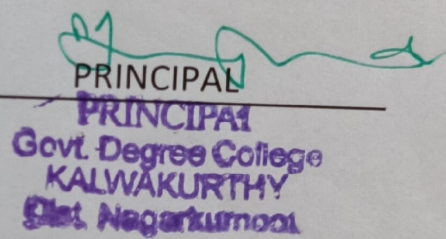 PRINCIPAL
PRINCIPAl
Govt. Degree College
KALWAKURTHY
Dist. Nagarkurnool